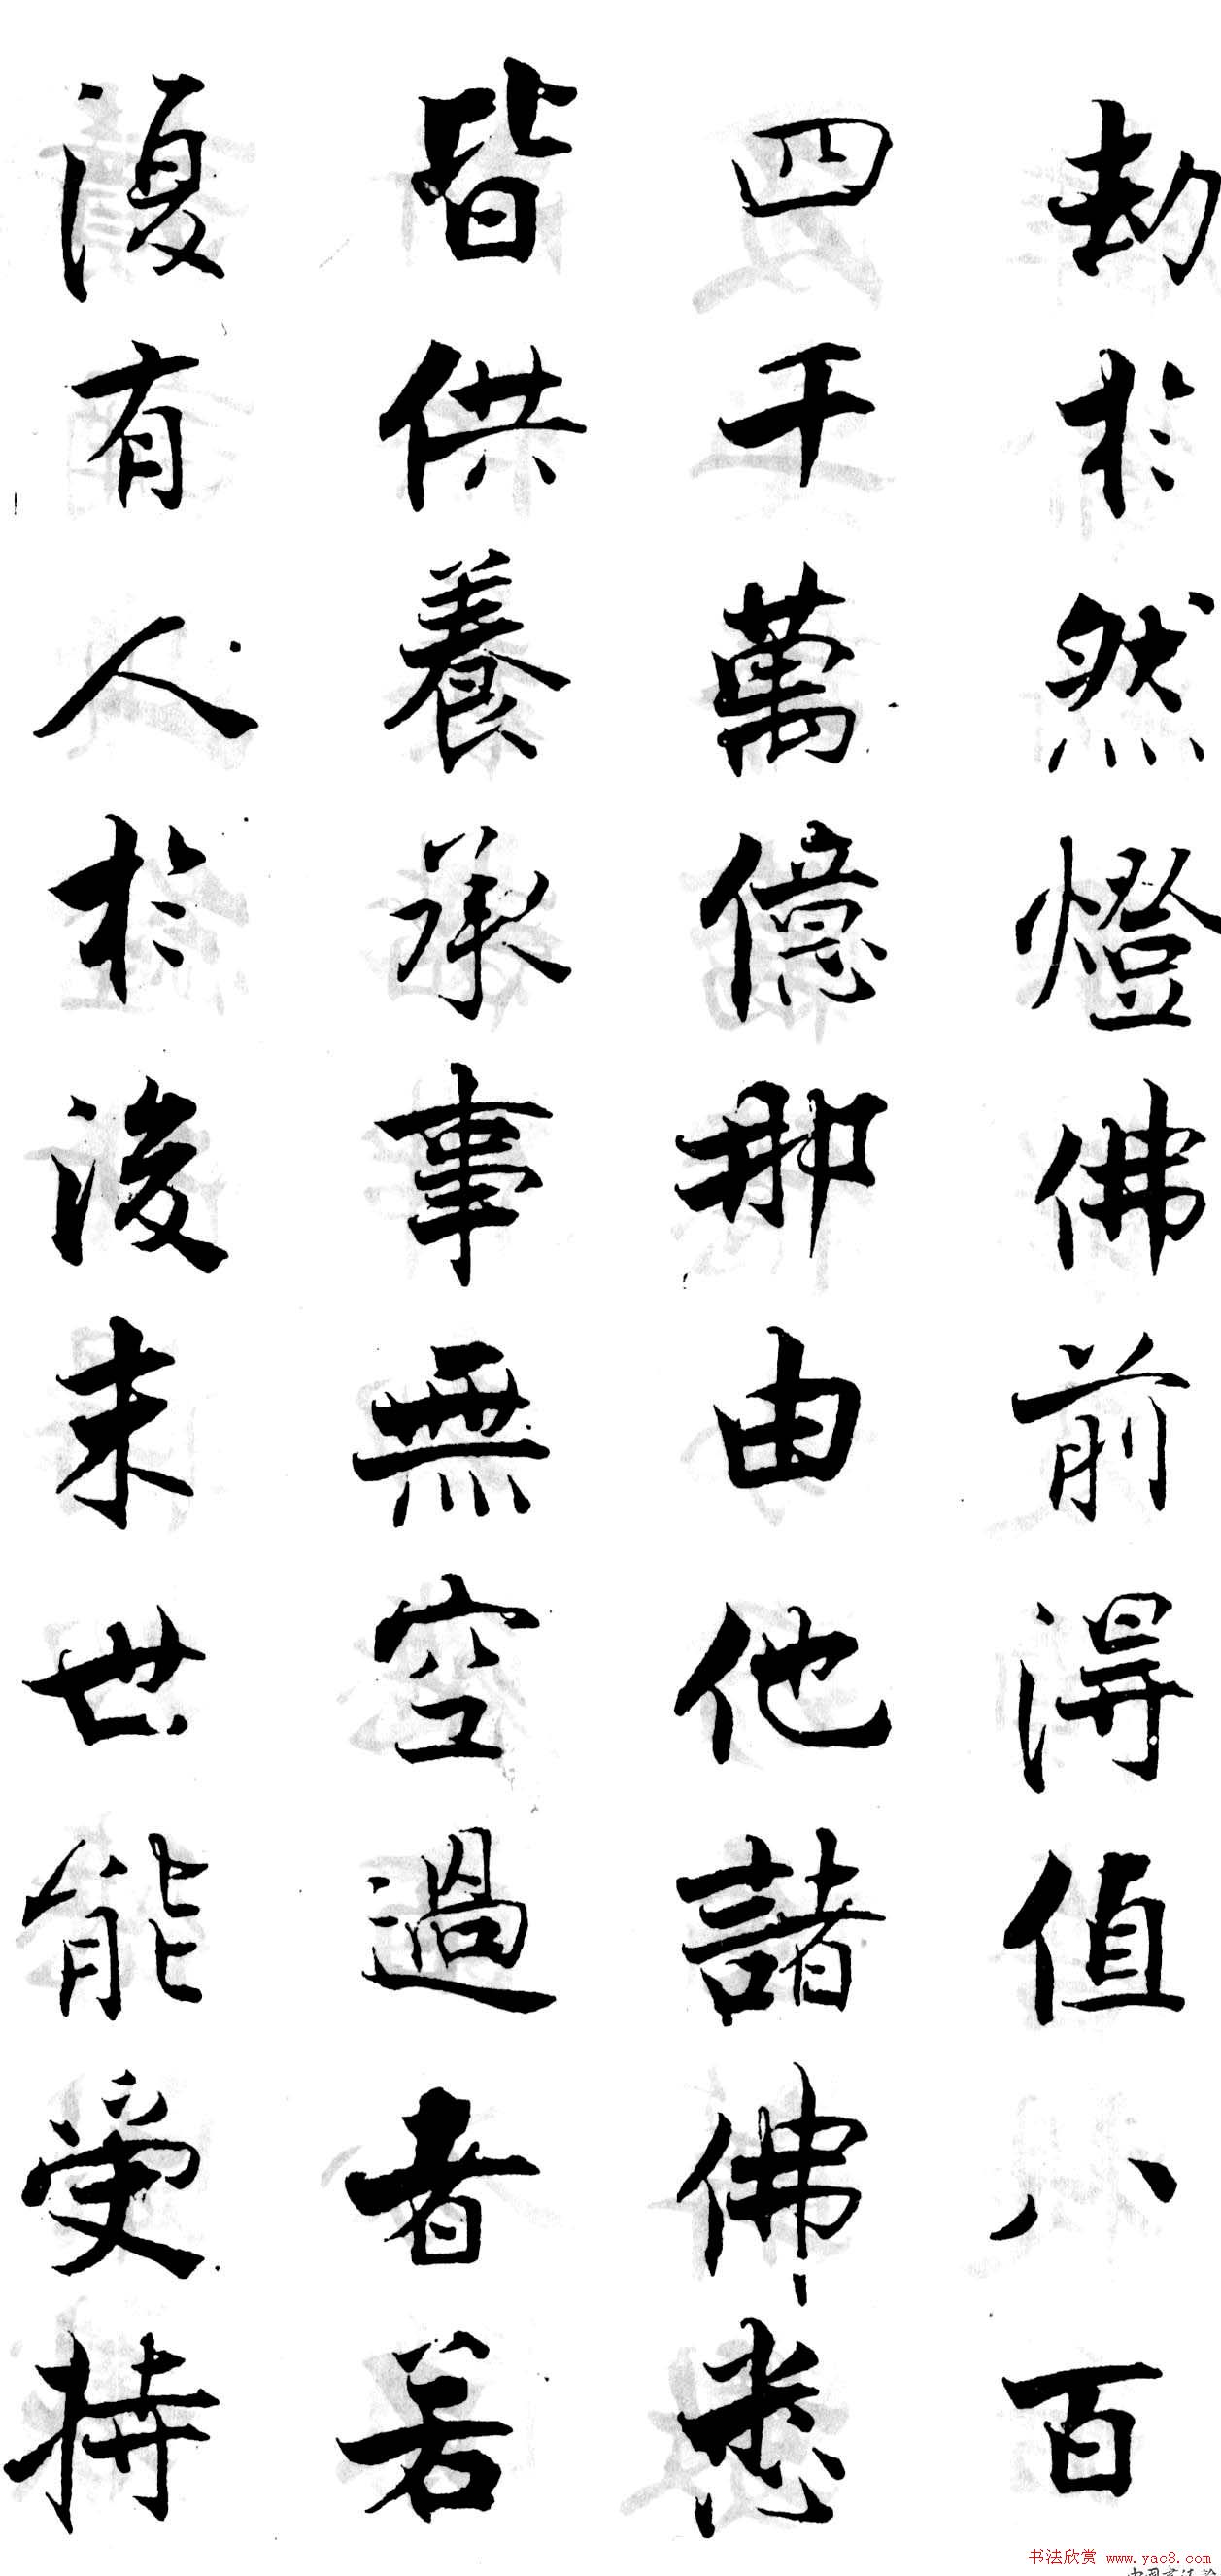 劫於然燈佛前得值八百
四千萬億那由他諸佛悉
皆供養承事無空過者若
復有人於後末世能受持
书法欣赏 www.yac8.com